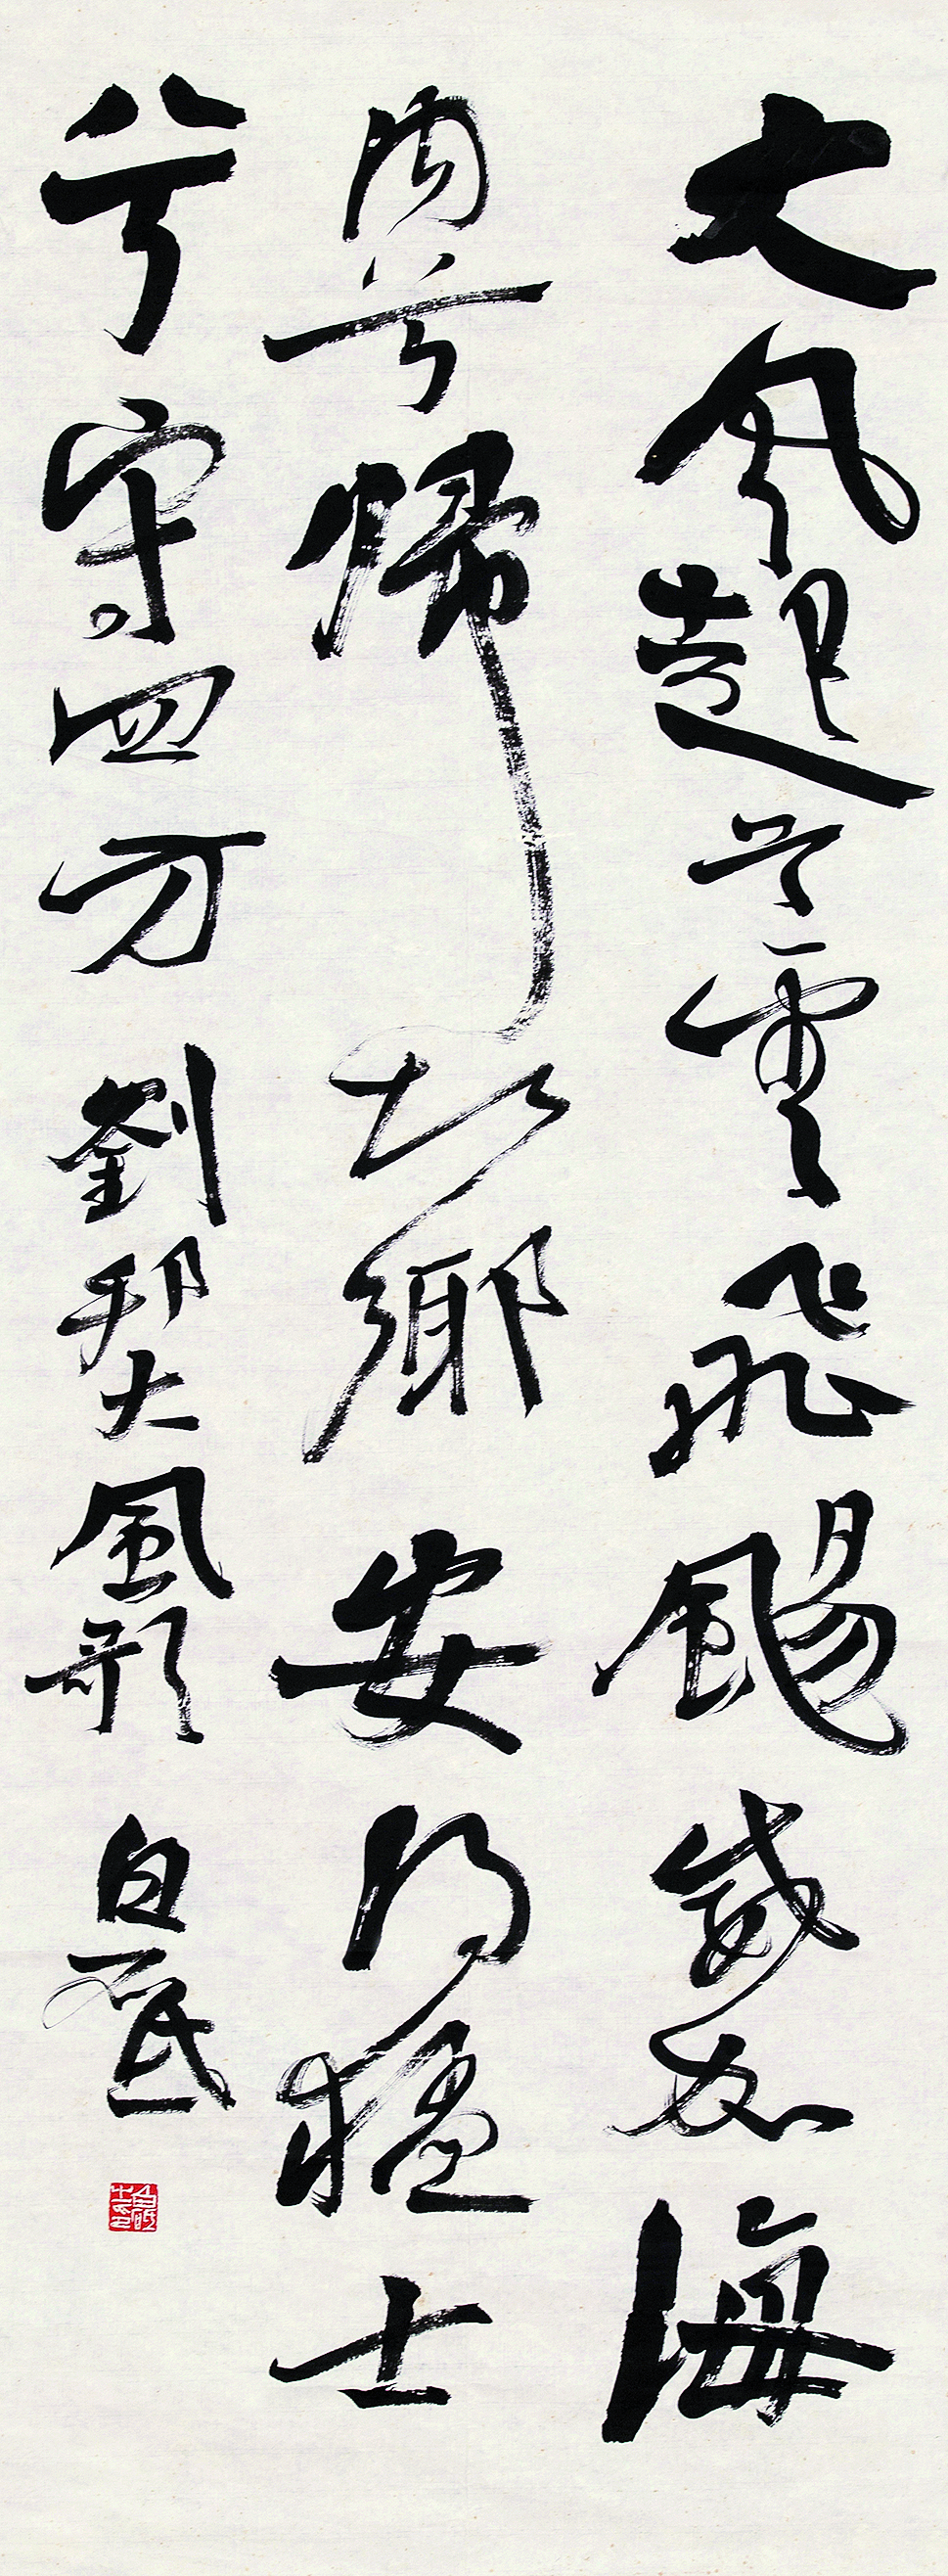 大風起兮雲飛颺威加海
內兮歸故鄉安得猛士
兮守四方劉邦大風歌白砥